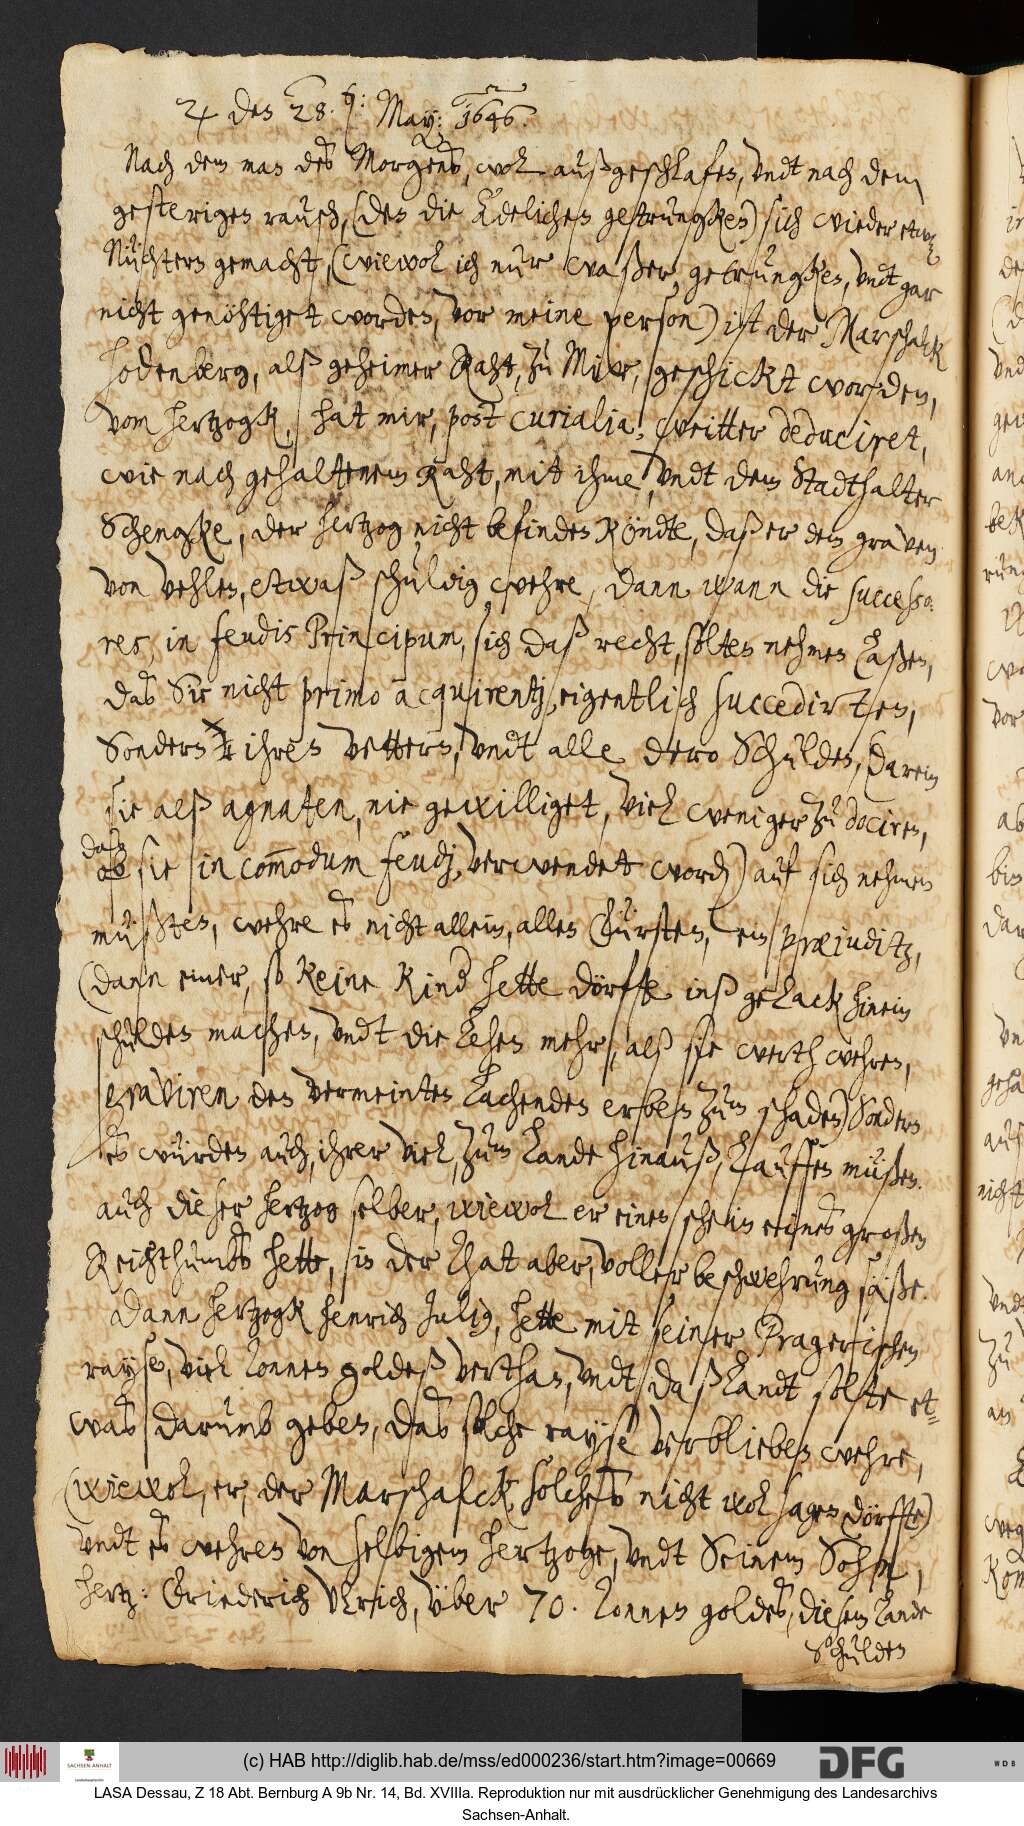 ♃ den 28. t: May: 1646.
Nach dem man des Morgens, wol außgeschlafen, undt nach dem
gesterigen rausch, (den die Edelichen getrungken) sich wieder etwaß
Nüchtern gemacht, (wiewol ich nur waßer, getrungken, undt gar
nicht genöhtiget worden, vor meine person) ist der Marschalck
Hodenberg, alß geheimer Raht, zu Mir, geschickt worden,
vom Hertzogk, hat mir, post curialia, weitter deduciret,
wie nach gehaltenem Raht, mit ihme, undt dem Stadthalter
Schengke, der Hertzog nicht befinden köndte, daß er dem graven
von Vehlen, etwaß schuldig wehre, dann wann die successo-
res, in feudis Principum, sich daß recht, solten nehmen laßen,
das Sie nicht primo acquirentj, eigentlich succedirten,
Sondern ihren Vettern, undt alle dero Schulden, (darein
sie alß agnaten, nie gewilliget, viel weniger zu dociren,
daß
ob sie in com̄odum feudj, verwendet word) auf sich nehmen
müßten, wehre es nicht allein, allen Fürsten, ein præjuditz,
(dann einer, so keine Kind hette dörffte inß gelack hinein
schulden machen, undt die Lehen mehr, alß sie werth wehren,
graviren den vermeinten Lachenden erben zum schaden) Sondern
es würden auch, ihrer viel, zum Lande hinauß, lauffen müßen.
auch dieser Hertzog selber, wiewol er einen schein eines großen
Reichthumbs hette, in der That aber, voller beschwehrung säße.
Dann Hertzogk Henrich Julius, hette mit seiner Pragerischen
rayse, viel Tonnen goldeß verthan, undt daß Landt solte et=
was darumb geben, das solche rayse verblieben wehre,
(wiewol, er, der Marschalck solches nicht wol sagen dörffte)
undt es wehren von selbigem Hertzoge, undt Seinem Sohn,
Hertz: Friederich Ulrich, über 70. Tonnen goldes, diesem Lande
Schulden
(c) HAB http://diglib.hab.de/mss/ed000236/start.htm?image=00669
SACHSEN-ANHALT
DFG
WDB
LASA Dessau, Z 18 Abt. Bernburg A 9b Nr. 14, Bd. XVIIIa. Reproduktion nur mit ausdrücklicher Genehmigung des Landesarchivs
Sachsen-Anhalt.